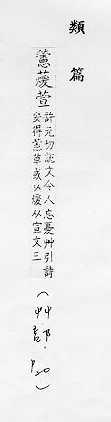 類篇
藼蕿萱
許元切說文令人忘憂艸引詩
安得藼草或从煖从宣文三
(艸部. p.20)